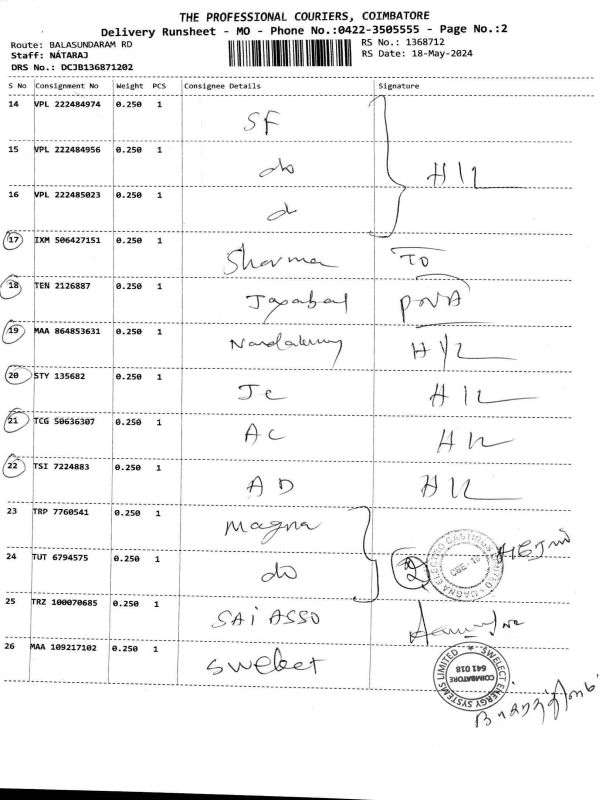 THE PROFESSIONAL COURIERS, COIMBATORE
Delivery Runsheet - MO - Phone No.:0422-3505555 - Page No.:2
Route: BALASUNDARAM RD
RS No.: 1368712
Staff: NATARAJ
RS Date: 18-May-2024
DRS No.: DCJB136871202
S No Consignment No Weight PCS Consignee Details Signature
14 VPL 222484974 0.250 1 SF
15 VPL 222484956 0.250 1 do
16 VPL 222485023 0.250 1
17 IXM 506427151 0.250 1 Sharma TO
18 TEN 2126887 0.250 1
19 MAA 864853631 0.250 1
20 STY 135682 0.250 1 JC
21 TCG 50636307 0.250 1 AC
22 TSI 7224883 0.250 1 AD
23 TRP 7760541 0.250 1 Magna
24 TUT 6794575 0.250 1 do 2
MAGNA ELECTRO CASTINGS LIMITED
CBE-18
25 TRZ 100070685 0.250 1 SAI ASSO
26 MAA 109217102 0.250 1 Swelect
SWELECT ENERGY SYSTEMS LIMITED
COIMBATORE
641 018